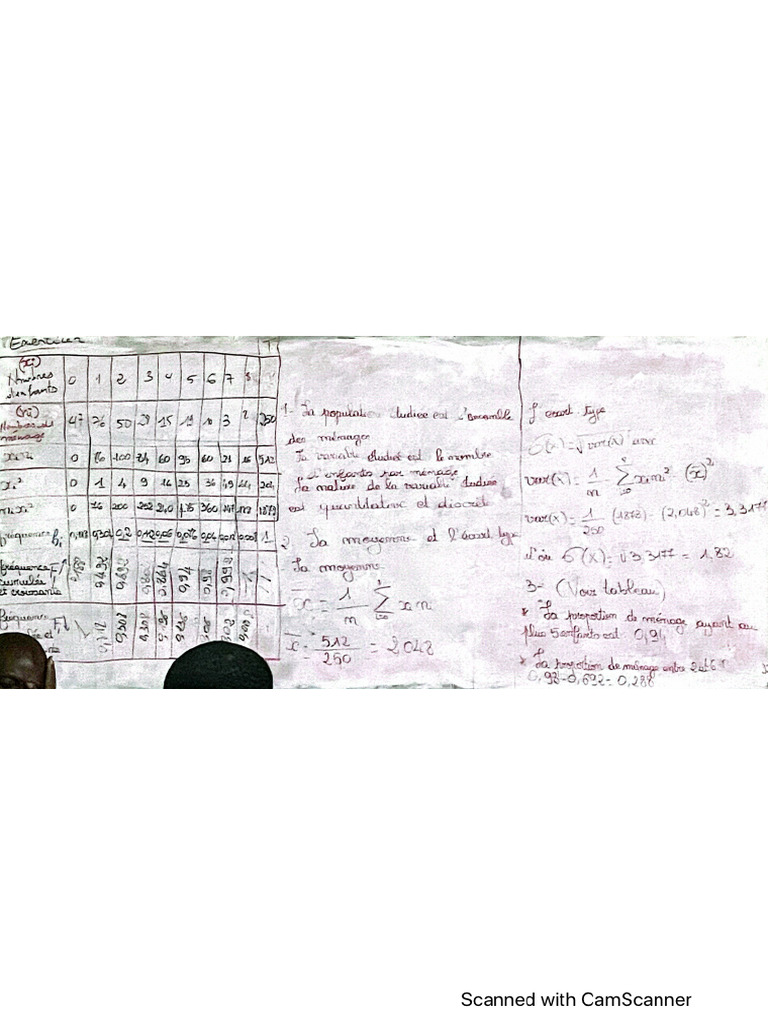 Exercice
(xi)
Nombres d'enfants 0 1 2 3 4 5 6 7 8
(ni)
Nombres de ménage 47 76 50 28 15 19 10 3 2 250
0 76 100 84 60 95 60 21 16 512
xi² 0 1 4 9 16 25 36 49 64 204
nixi² 0 76 200 252 240 475 360 147
fréquence fi 0,188 0,304 0,2 0,112 0,06 0,076 0,04 0,012 0,008 1
fréquence F↑
cumulée
et croissante 0,188 0,492 0,692 0,864 0,94 0,98
fréquence F↓
1- La population étudiée est l'ensemble
des ménages
La variable étudiée est le nombre
d'enfants par ménage
La nature de la variable étudiée
est quantitative et discrète
2- La moyenne et l'écart type
La moyenne
x̄ = 1/n Σ x n
x̄ = 512/250 = 2,048
L'écart type
σ(x) = √var(x) avec
var(x) = 1/n Σ xini² - (x̄)²
var(x) = 1/250 (1878) - (2,048)² = 3,3177
d'où σ(x) = √3,3177 = 1,82
3- (Voir tableau)
* La proportion de ménage ayant au
plus 5 enfants est 0,94
* La proportion de ménage entre 2 et 6
0,98-0,692=0,288
Scanned with CamScanner